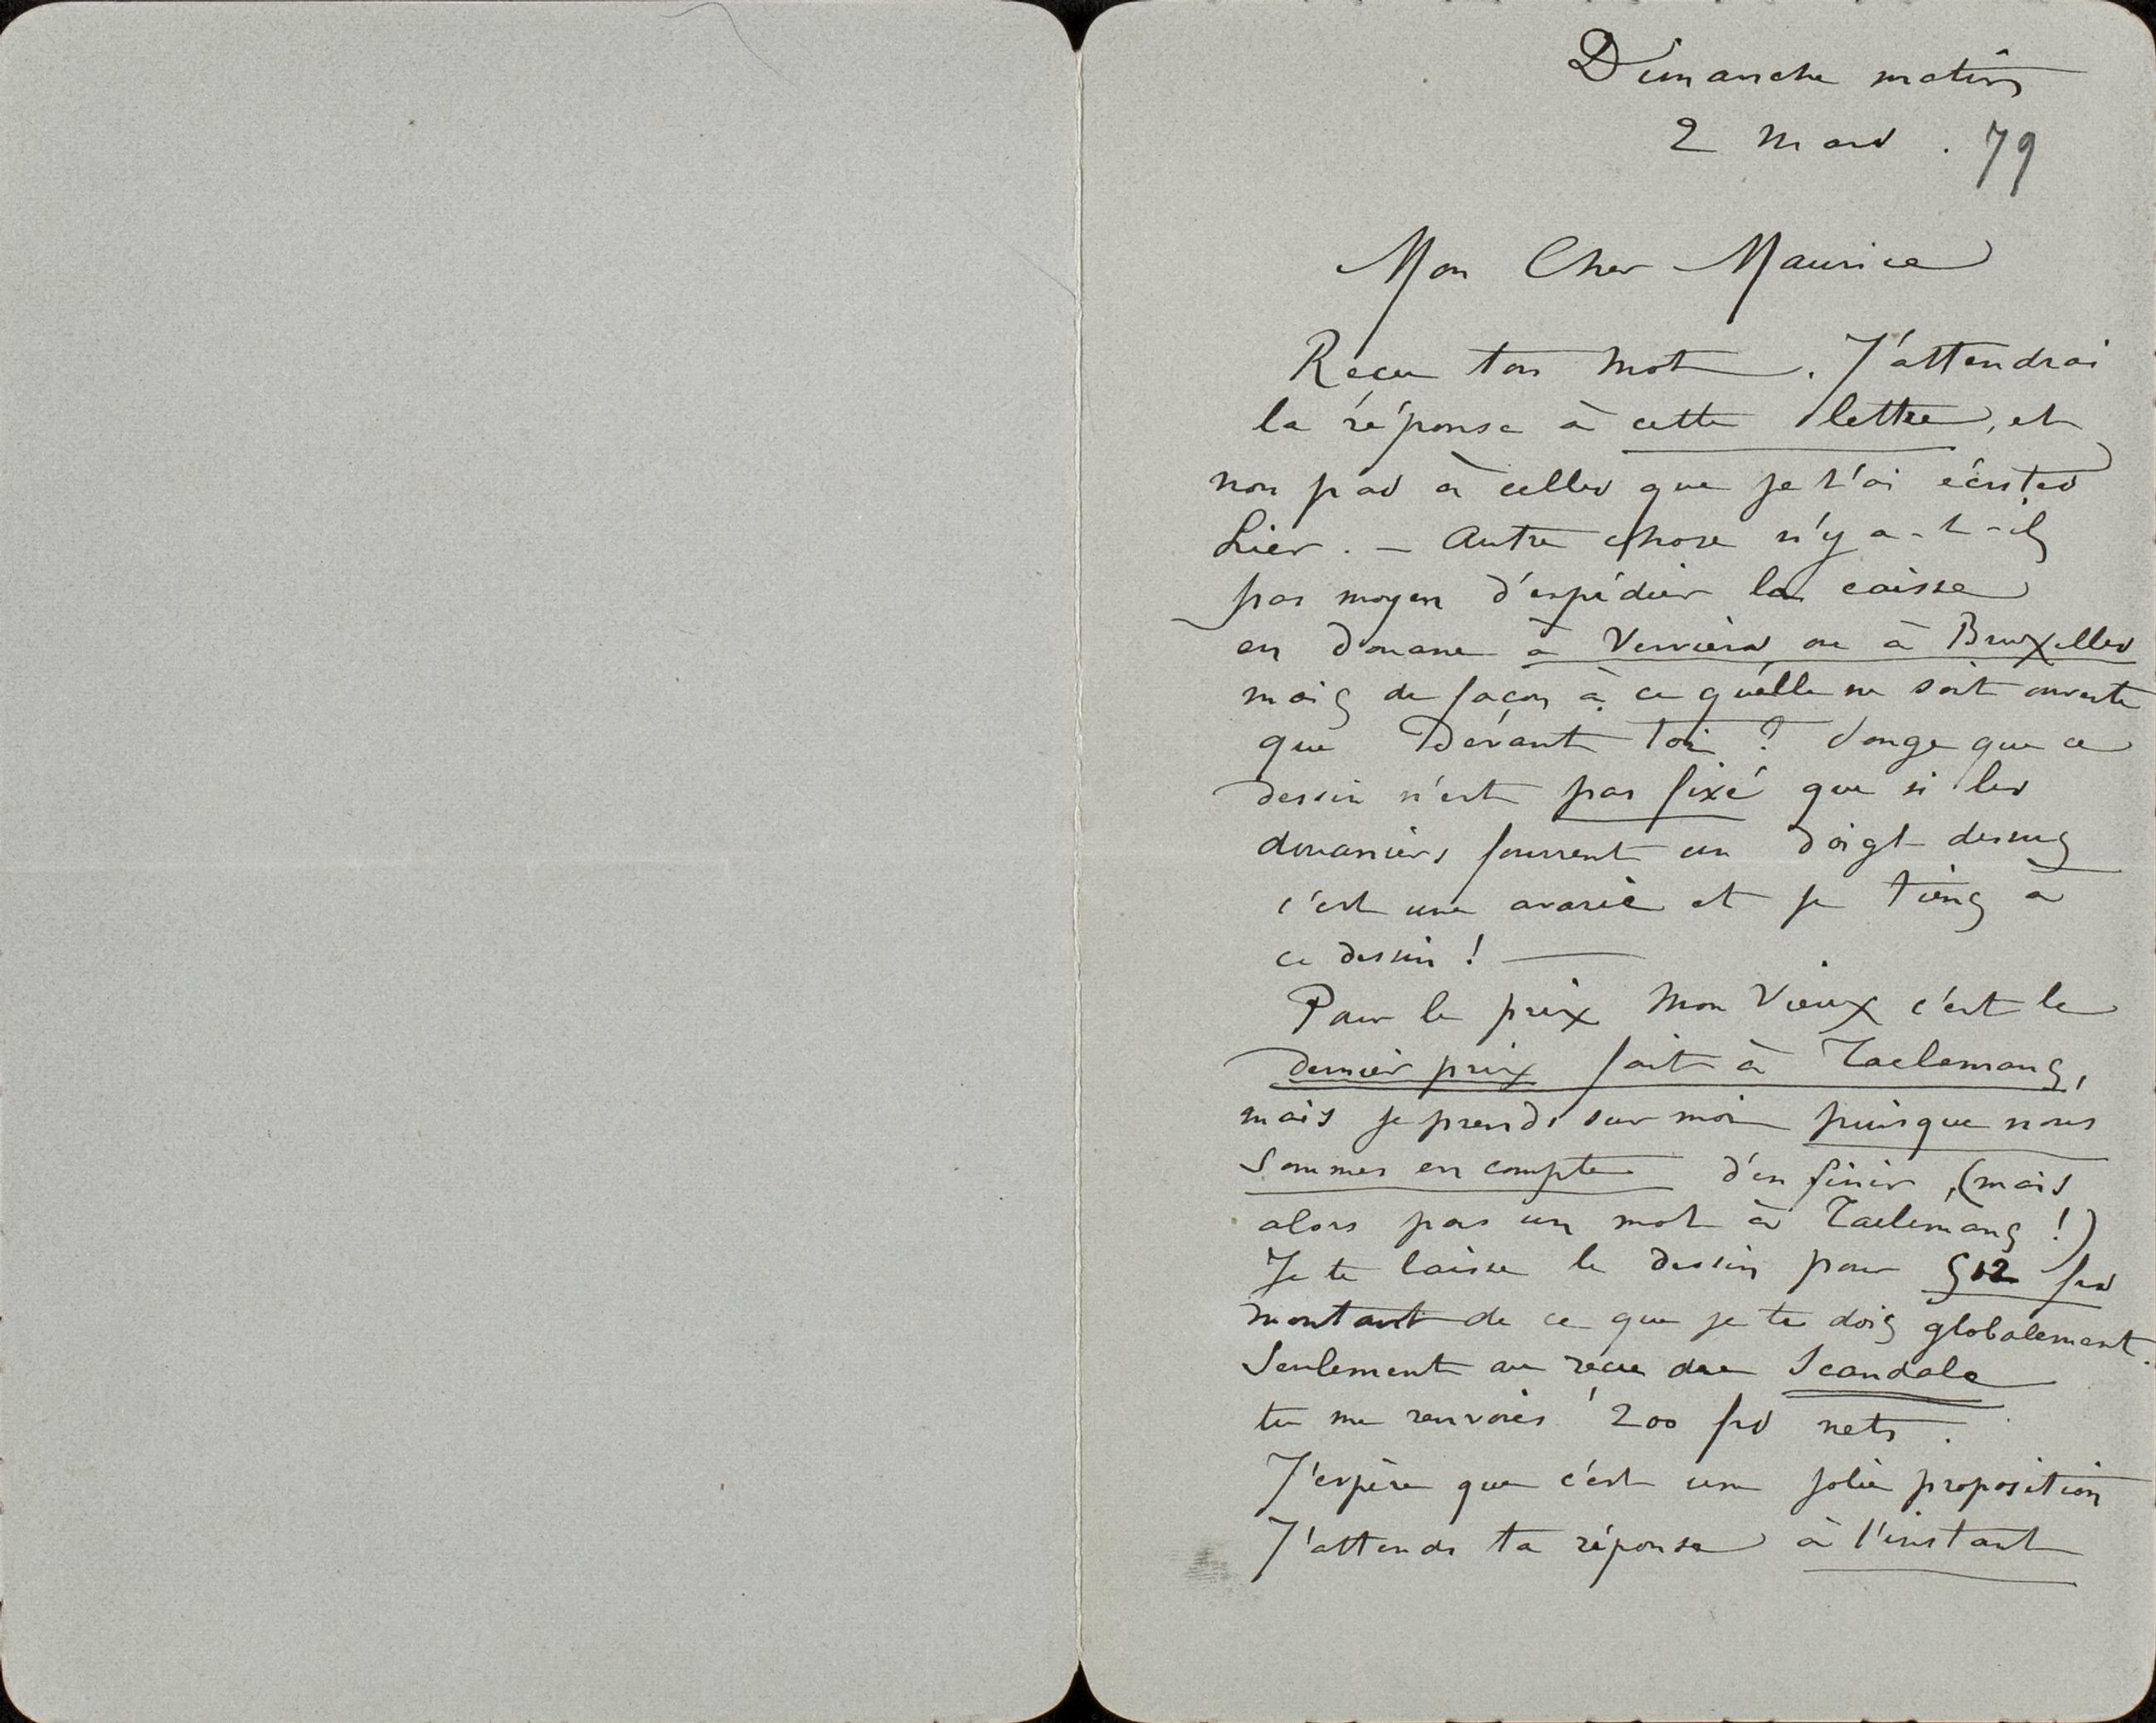 Dimanche matin
2 Mars . 79
Mon Cher Maurice
Reçu ton mot . J'attendrai
la réponse à cette lettre, et
non pas à celles que je t'ai écrites
hier . — Autre chose n'y a-t-il
pas moyen d'expédier la caisse
en Douane à Verviers ou à Bruxelles
mais de façon à ce qu'elle ne soit ouverte
que Devant Toi ? Songe que ce
dessin n'est pas fixé que si les
douaniers fourrent un doigt dessus
c'est une avarie et je tiens à
ce dessin ! —
Pour le prix Mon Vieux c'est le
dernier prix fait à Taelemans,
mais je prends sur moi puisque nous
sommes en compte d'en finir, (mais
alors pas un mot à Taelemans !)
Je te laisse le dessin pour 512 frs
montant de ce que je te dois globalement.
Seulement au reçu du Scandale
tu me renvoies 200 frs nets .
J'espère que c'est une jolie proposition
J'attends ta réponse à l'instant